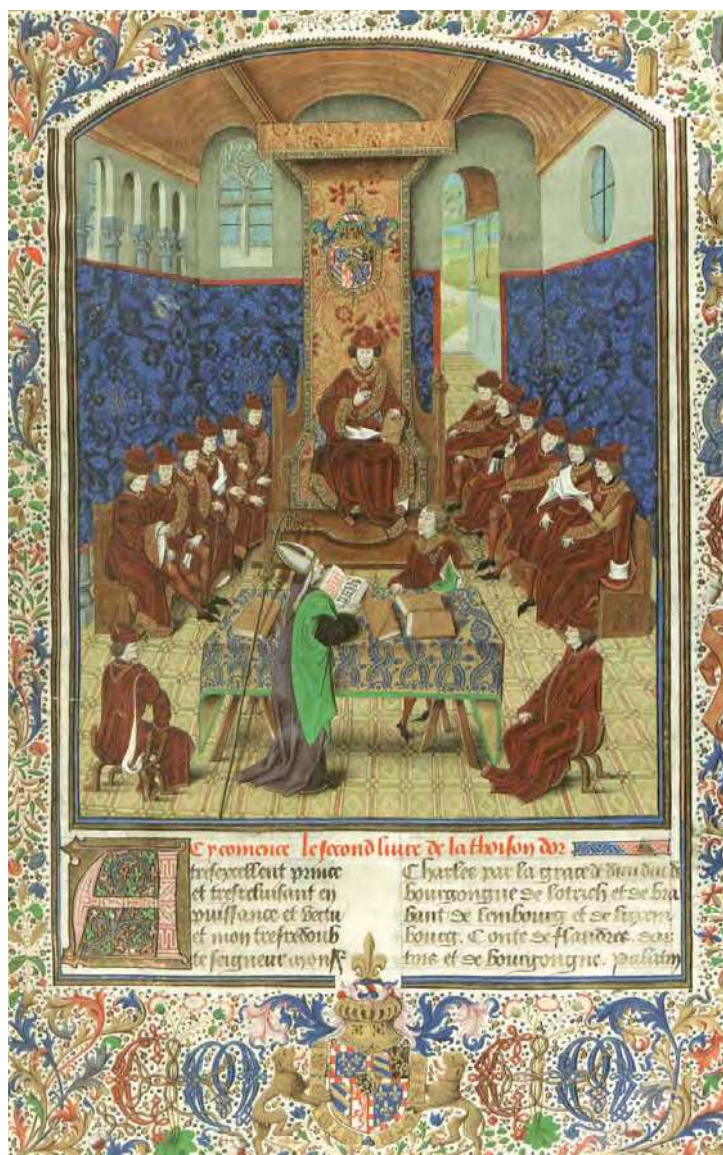 Cy comence le second liure de la thoison dor
A tresexcellent prince
et tresreluisant en
puissance et vertu
et mon tresredoub
te seigneur
Charles par la grace de dieu duc de
bourgongne de lotrich et de bra
bant de lembourg et de luxem
bourg. Conte de flandres. dar
tois et de bourgongne. palatin